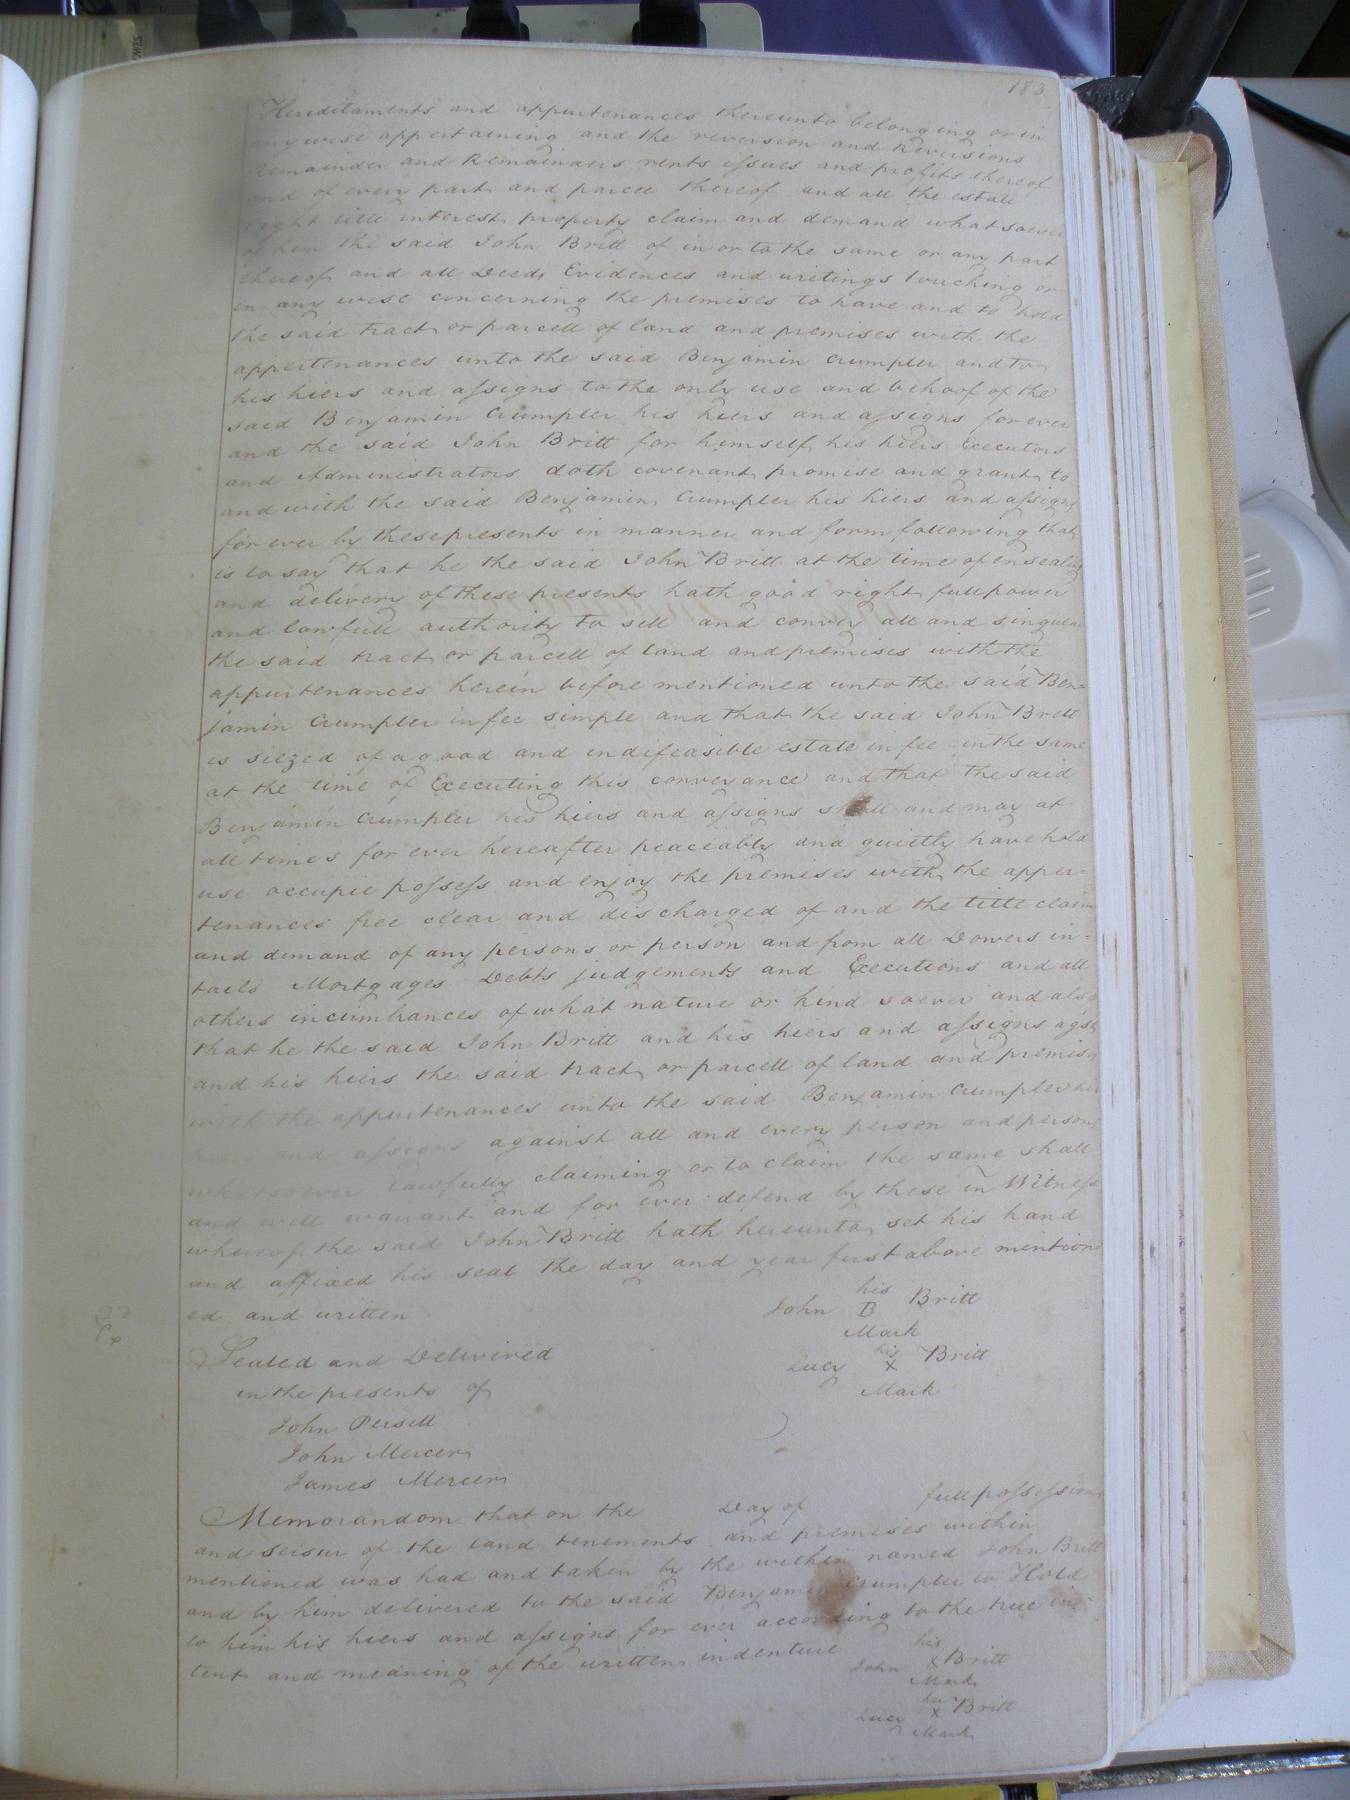 183
Hereditaments and appurtenances thereunto belonging or in
any wise appertaining and the reversion and Reversions
Remainder and Remainders rents issues and profits thereof
and of every part and parcell thereof and all the estate
right title interest property claim and demand whatsoever
of him the said John Britt of in or to the same or any part
thereof and all Deeds Evidences and writings touching or
in any wise concerning the premises to have and to hold
the said tract or parcell of land and premises with the
appertenances unto the said Benjamin Crumpler and to
his hiers and assigns to the only use and behoof of the
said Benjamin Crumpler his hiers and assigns for ever
and the said John Britt for himself his hiers Executors
and Administrators doth covenant promise and grant to
and with the said Benjamin Crumpler his hiers and assigns
for ever by these presents in manner and form following that
is to say that he the said John Britt at the time of ensealing
and delivery of these presents hath good right full power
and lawfull authority to sell and convey all and singular
the said tract or parcell of land and premises with the
appurtenances herein before mentioned unto the said Ben=
jamin Crumpler in fee simple and that the said John Britt
is siezed of a good and indifeasible estate in fee in the same
at the time of Executing this conveyance and that the said
Benjamin Crumpler his hiers and assigns shall and may at
all times for ever hereafter peaciably and quietly have hold
use occupie possess and enjoy the premises with the apper-
tenances free clear and discharged of and the title claim
and demand of any persons or person and from all Dowers in=
tails Mortgages Debts judgements and Executions and all
others incumbrances of what nature or kind soever and also
that he the said John Britt and his hiers and assigns agst
and his hiers the said tract or parcell of land and premises
with the appurtenances unto the said Benjamin Crumpler his
hiers and assigns against all and every person and persons
whatsoever lawfully claiming or to claim the same shall
and will warrant and for ever defend by these in Witness
whereof the said John Britt hath hereunto set his hand
and affixed his seal the day and year first above mention
ed and written
his
John B Britt
Mark
his
Lucy x Britt
Mark
Sealed and Delivired
in the presents of
John Persell
John Mercer
James Mercer
Memorandom that on the Day of full possession
and seisur of the land tenements and premises within
mentioned was had and taken by the within named John Britt
and by him delivered to the said Benjamin Crumpler to Hold
to him his hiers and assigns for ever according to the true in=
tent and meaning of the written indenture
his
John x Britt
Mark
her
Lucy x Britt
Mark